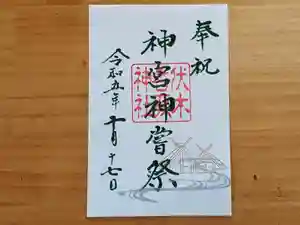 奉祝
神宮神嘗祭
伏木
神社
令和五年十月十七日